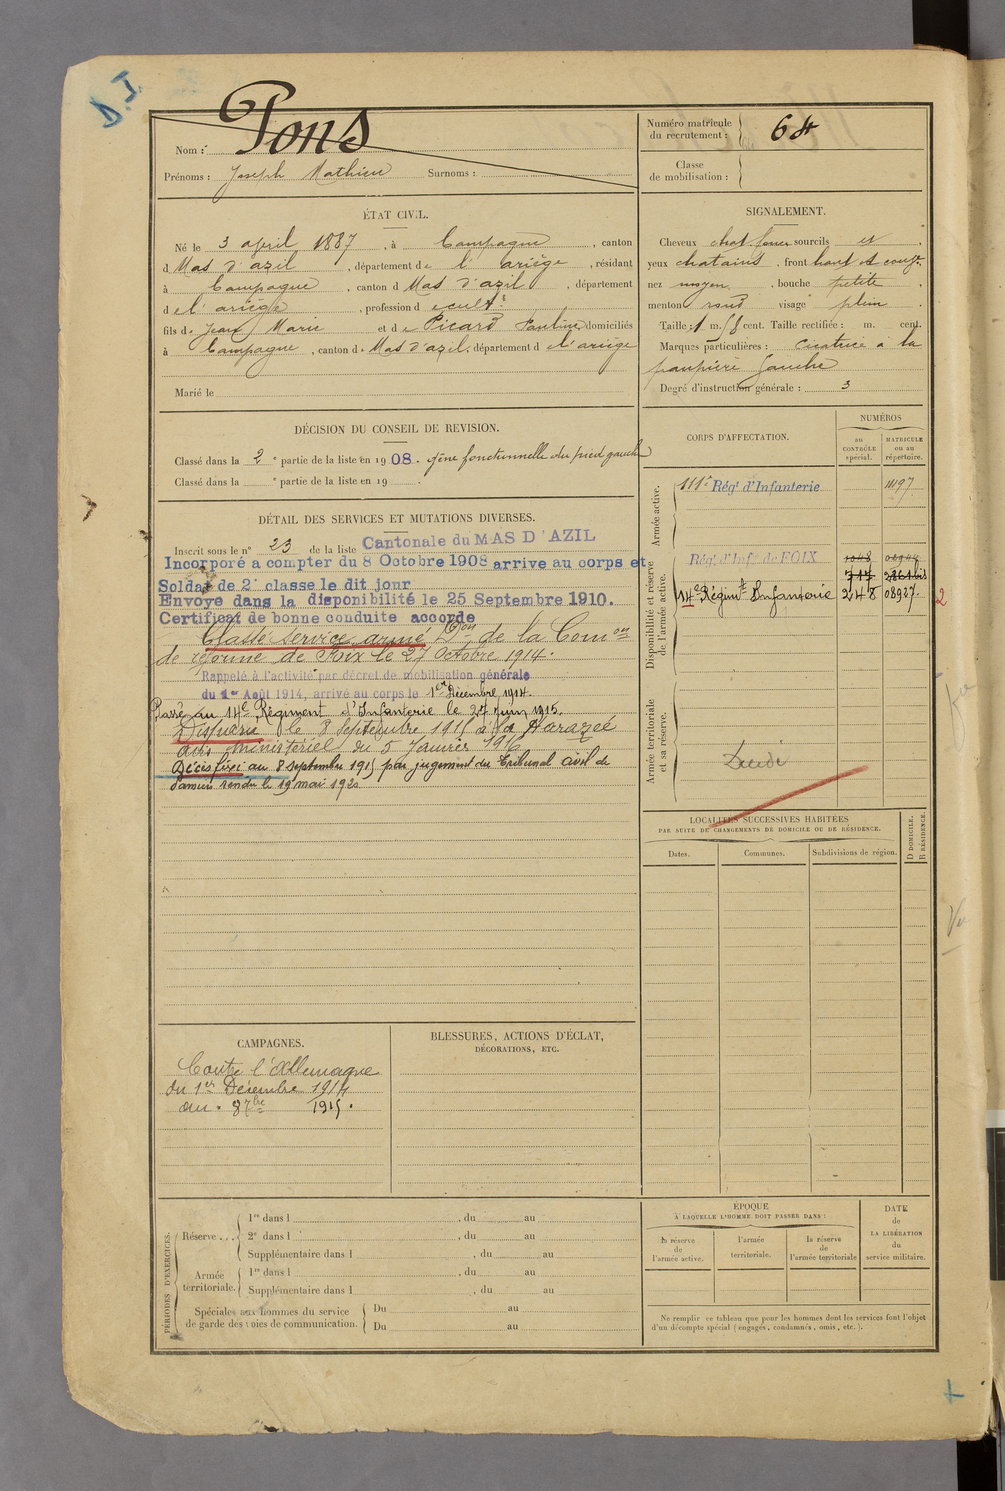 D.I.
Nom : Pons
Prénoms : Joseph Mathieu Surnoms :
Numéro matricule du recrutement : 64
Classe de mobilisation :
ÉTAT CIVIL.
Né le 3 april 1887, à Campagne, canton
d Mas d'azil, département de l'ariège, résidant
à Campagne, canton d Mas d'azil, département
d el'ariège, profession d
fils de Jean Marie et de Picard Pauline, domiciliés
à Campagne, canton de Mas d'azil, département d el'ariège
Marié le
SIGNALEMENT.
Cheveux chat. foncé sourcils id
yeux chatains, front haut et
nez moyen, bouche petite,
menton rond visage plein
Taille : 1 m. 58 cent. Taille rectifiée : m. cent.
Marques particulières : cicatrice à la
paupière gauche
Degré d'instruction générale : 3
DÉCISION DU CONSEIL DE REVISION.
Classé dans la 2e partie de la liste en 1908. gêne fonctionnelle du pied gauche
Classé dans la e partie de la liste en 19 .
DÉTAIL DES SERVICES ET MUTATIONS DIVERSES.
Inscrit sous le n° 23 de la liste Cantonale du MAS D'AZIL
Incorporé à compter du 8 Octobre 1908 arrive au corps et
Soldat de 2e classe le dit jour
Envoyé dans la disponibilité le 25 Septembre 1910.
Certificat de bonne conduite accordé
Classé service armé Don de la Comon
de réforme de Foix le 27 Octobre 1914.
Rappelé à l'activité par décret de mobilisation générale
du 1er Août 1914, arrivé au corps le 1er Décembre 1914.
Passé au 14e Régiment d'Infanterie le 27 juin 1915.
Disparu le 8 Septembre 1915 à la Harazée
avis ministériel du 5 Janvier 1916
Décès fixé au 8 septembre 1915 par jugement du Tribunal civil de
Pamiers rendu le 19 mai 1920.
CORPS D'AFFECTATION.
NUMÉROS
au CONTRÔLE spécial.
MATRICULE ou au répertoire.
Armée active.
111e Régt d'Infanterie
Disponibilité et réserve de l'armée active.
Régt d'Inf. de FOIX
14e Régimt d'Infanterie 248 08927. 2
Armée territoriale et sa réserve.
LOCALITÉS SUCCESSIVES HABITÉES
PAR SUITE DE CHANGEMENTS DE DOMICILE OU DE RÉSIDENCE.
Dates. Communes. Subdivisions de région. D DOMICILE. R RÉSIDENCE.
CAMPAGNES.
Contre l'Allemagne
du 1er Décembre 1914
au 8 7bre 1915.
BLESSURES, ACTIONS D'ÉCLAT,
DÉCORATIONS, ETC.
PÉRIODES D'EXERCICES.
Réserve ... 1re dans l , du au
2e dans l , du au
Supplémentaire dans l , du au
Armée territoriale. 1re dans l , du au
Supplémentaire dans l , du au
Spéciales aux hommes du service
de garde des voies de communication.
Du au
Du au
ÉPOQUE
À LAQUELLE L'HOMME DOIT PASSER DANS :
la réserve de l'armée active.
l'armée territoriale.
la réserve de l'armée territoriale
DATE de LA LIBÉRATION du service militaire.
Ne remplir ce tableau que pour les hommes dont les services font l'objet
d'un décompte spécial (engagés, condamnés, omis, etc.).